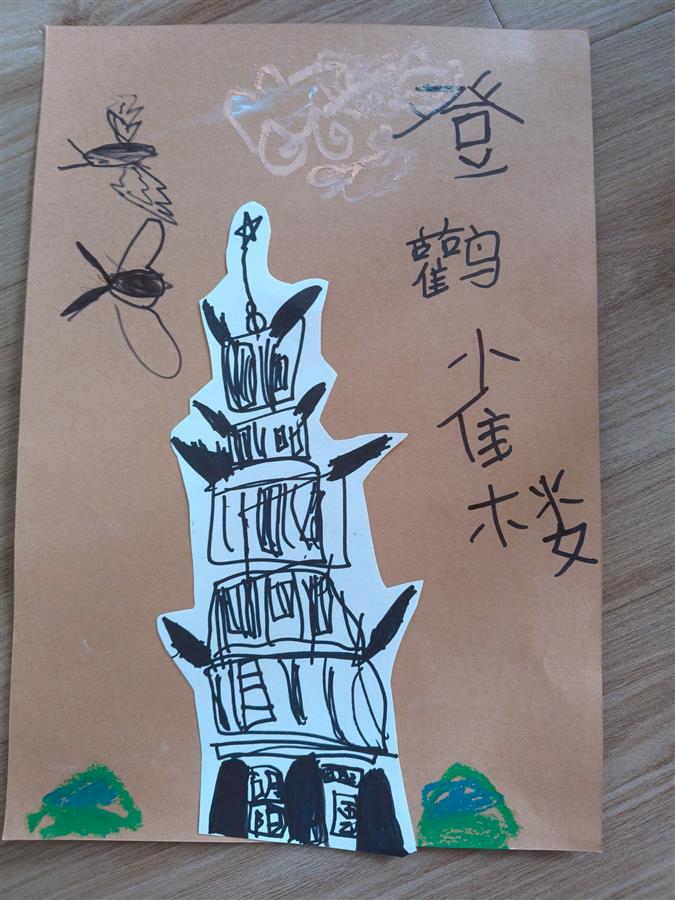 登鹳雀楼